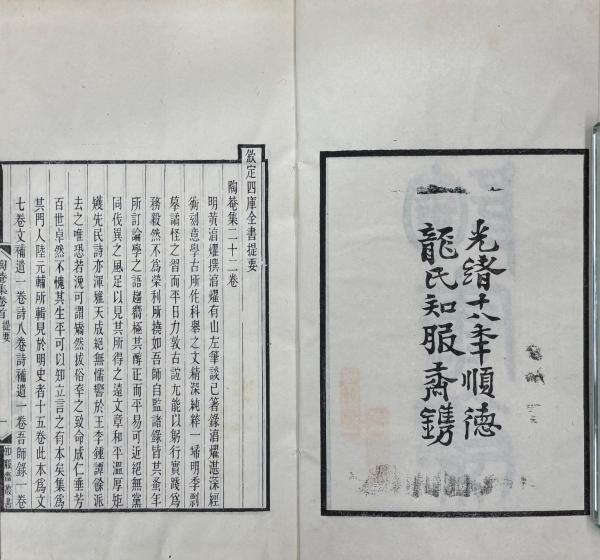 光緒十八年順德
龍氏知服斎鐫
欽定四庫全書提要
陶菴集二十二卷
明黃湻燿撰湻燿有山左筆談已著錄湻燿湛深經
術刻意學古所作科舉之文精深純粹一埽明季剽
摹譎怪之習而平日力敦古誼尤能以躬行實踐爲
務毅然不爲榮利所撓如吾師自監諸錄皆其蚤年
所訂論學之語趨嚮極其醇正而平易可近絕無黨
同伐異之風足以見其所得之遠文章和平溫厚矩
矱先民詩亦渾雅天成絕無懦響於王李鍾譚餘派
去之唯恐若浼可謂矯然拔俗卒之致命成仁垂芳
百世卓然不愧其生平可以知立言之有本矣集爲
其門人陸元輔所輯見於明史者十五卷此本爲文
七卷文補遺一卷詩八卷詩補遺一卷吾師錄一卷
陶菴集卷首 提要
一
知服齋叢書